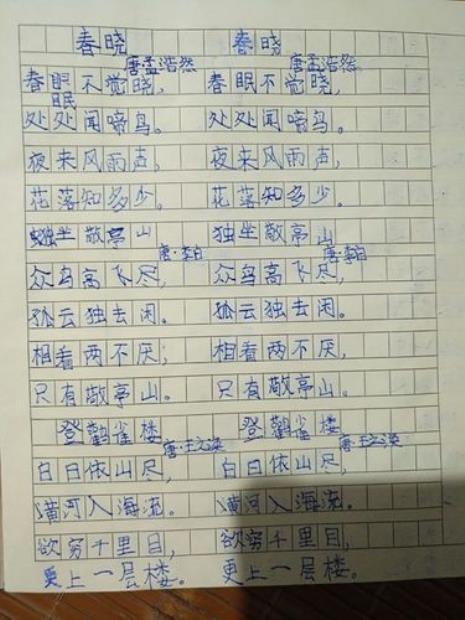 春晓 春晓
唐·孟浩然 唐孟浩然
春眠不觉晓, 春眠不觉晓,
眠
处处闻啼鸟。 处处闻啼鸟。
夜来风雨声, 夜来风雨声,
花落知多少。 花落知多少。
独坐敬亭山 独坐敬亭山
唐·李白 唐·李白
众鸟高飞尽, 众鸟高飞尽,
孤云独去闲。 孤云独去闲。
相看两不厌; 相看两不厌,
只有敬亭山。 只有敬亭山。
登鹳雀楼 登鹳雀楼
唐·王之涣 唐·王之涣
白日依山尽, 白日依山尽,
黄河入海流。 黄河入海流。
欲穷千里目, 欲穷千里目,
更上一层楼。 更上一层楼。